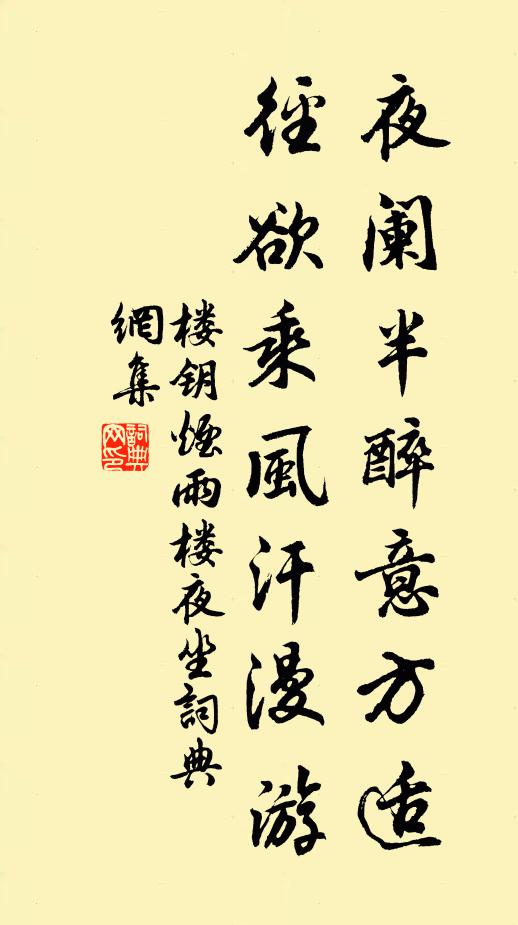 夜阑半醉意方适
徑欲乘風汗漫游
楼钥煙雨楼夜坐詞典
網集
詞典
网印